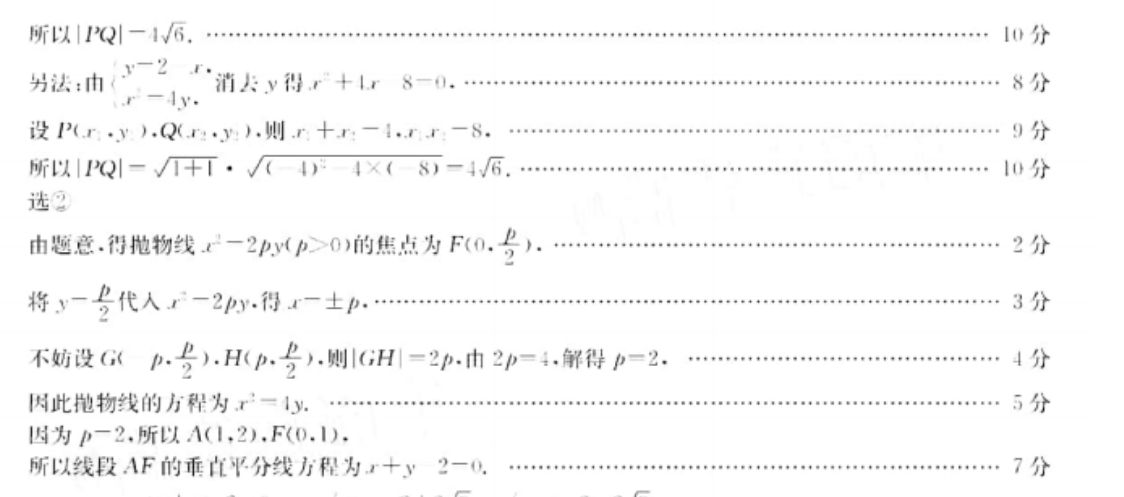 所以|PQ|=4√6. …… 10分
另法:由{y=2-x, x²=4y, 消去y得x²+4x-8=0, …… 8分
设P(x₁,y₁),Q(x₂,y₂),则x₁+x₂=-4,x₁x₂=-8, …… 9分
所以|PQ|=√(1+1)·√((-4)²-4×(-8))=4√6. …… 10分
选②
由题意,得抛物线x²=2py(p>0)的焦点为F(0,p/2), …… 2分
将y=p/2代入x²=2py,得x=±p, …… 3分
不妨设G(-p,p/2),H(p,p/2),则|GH|=2p,由2p=4,解得p=2, …… 4分
因此抛物线的方程为x²=4y. …… 5分
因为p=2,所以A(1,2),F(0,1),
所以线段AF的垂直平分线方程为x+y-2=0. …… 7分